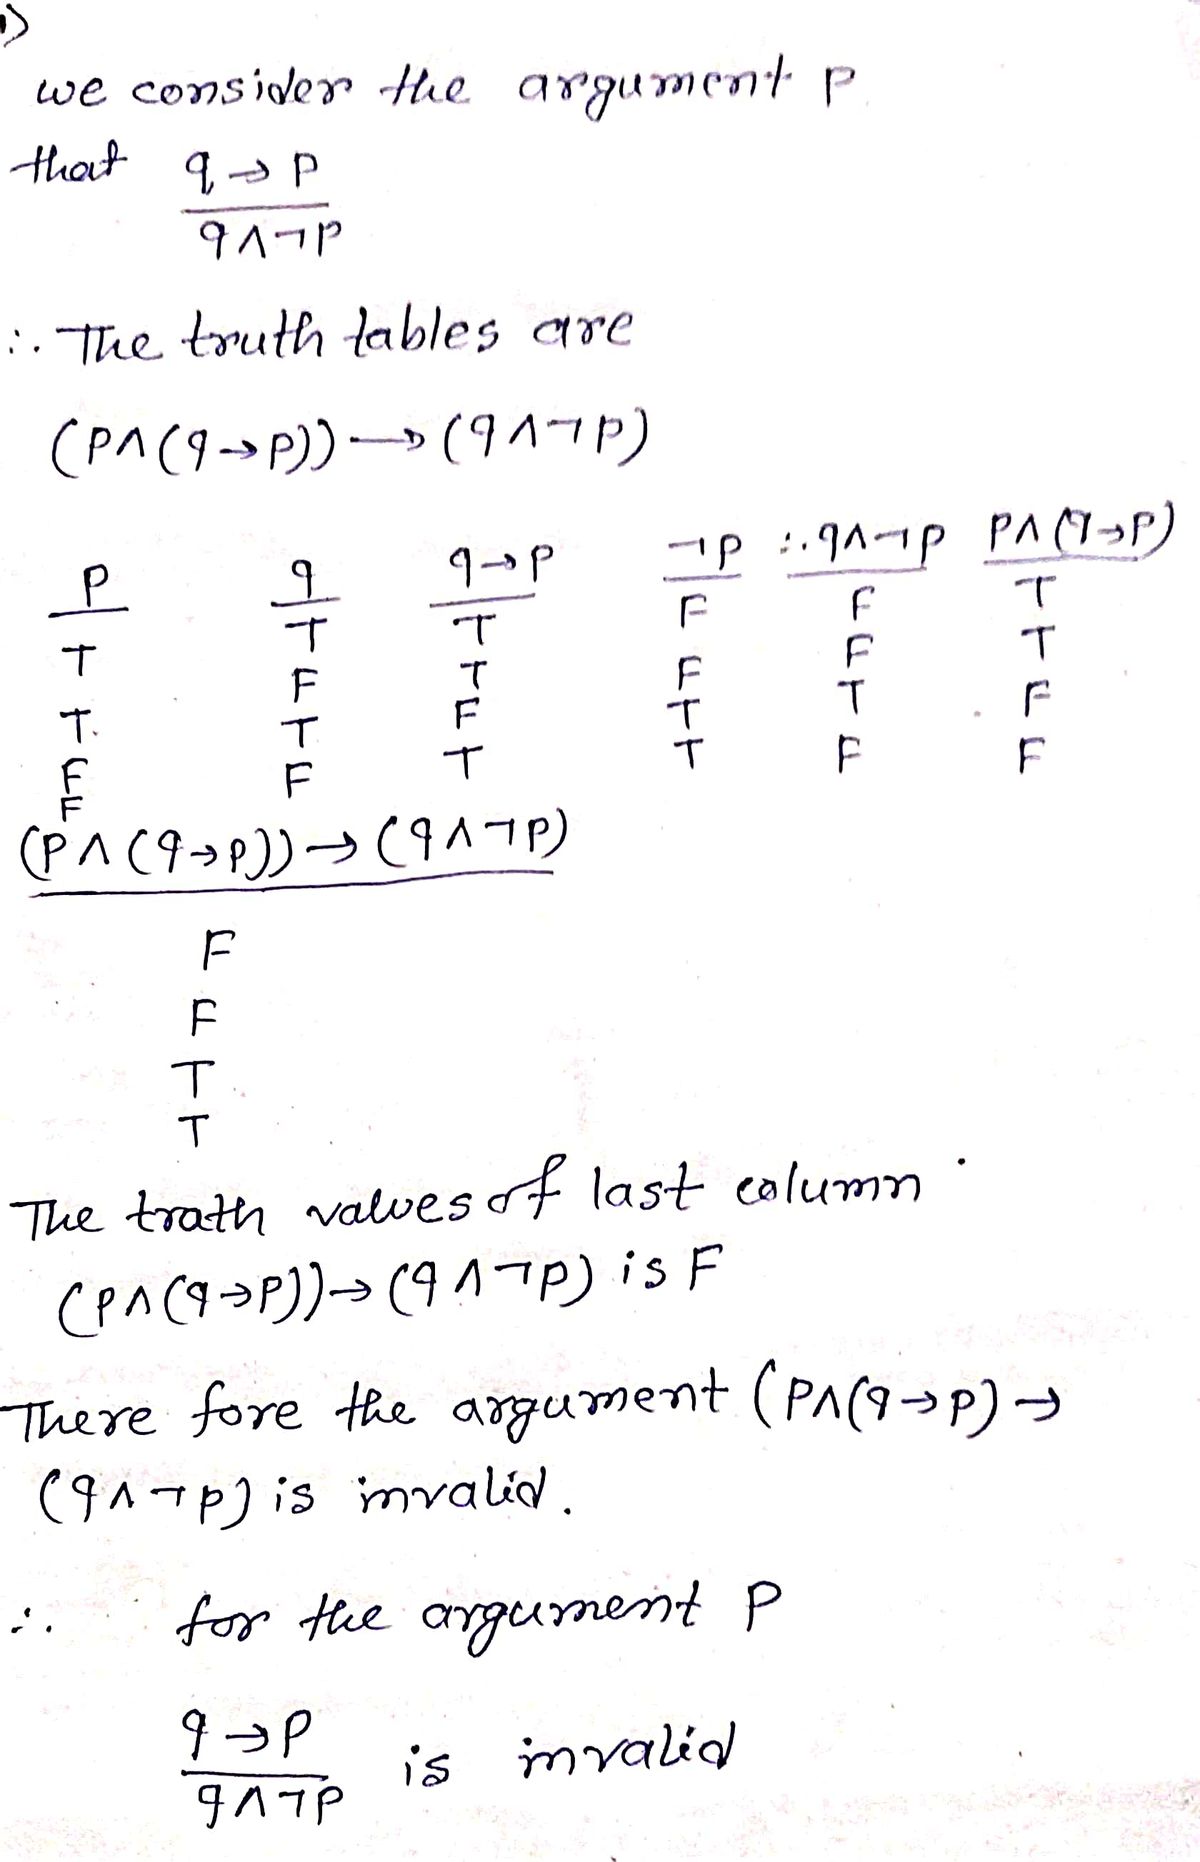 1)
we consider the argument p
that q → p
q∧¬p
∴ The truth tables are
(p∧(q→p))→(q∧¬p)
p q q→p ¬p ∴q∧¬p p∧(q→p)
T T T F F T
T. F T F F T
F T F T T F
F F T T F F
(p∧(q→p))→(q∧¬p)
F
F
T
T
The trath values of last column
(p∧(q→p))→(q∧¬p) is F
There fore the argument (p∧(q→p)→
(q∧¬p) is invalid.
∴ for the argument p
q→p
q∧¬p is invalid